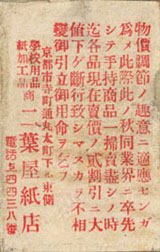 物價調節ノ趣意ニ適應センガ
爲メ此際此ノ秋同業界ニ卒先
シテ手持商品一掃賣盡シノ時
迄各品現在賣價ノ貳割引ニ大
値下ゲ斷行致シマスカラ不相
變御引立御用命ヲ乞フ
京都市寺町通丸太町下ル東側
學校用品商
紙加工品
二葉屋紙店
電話上四四三八番